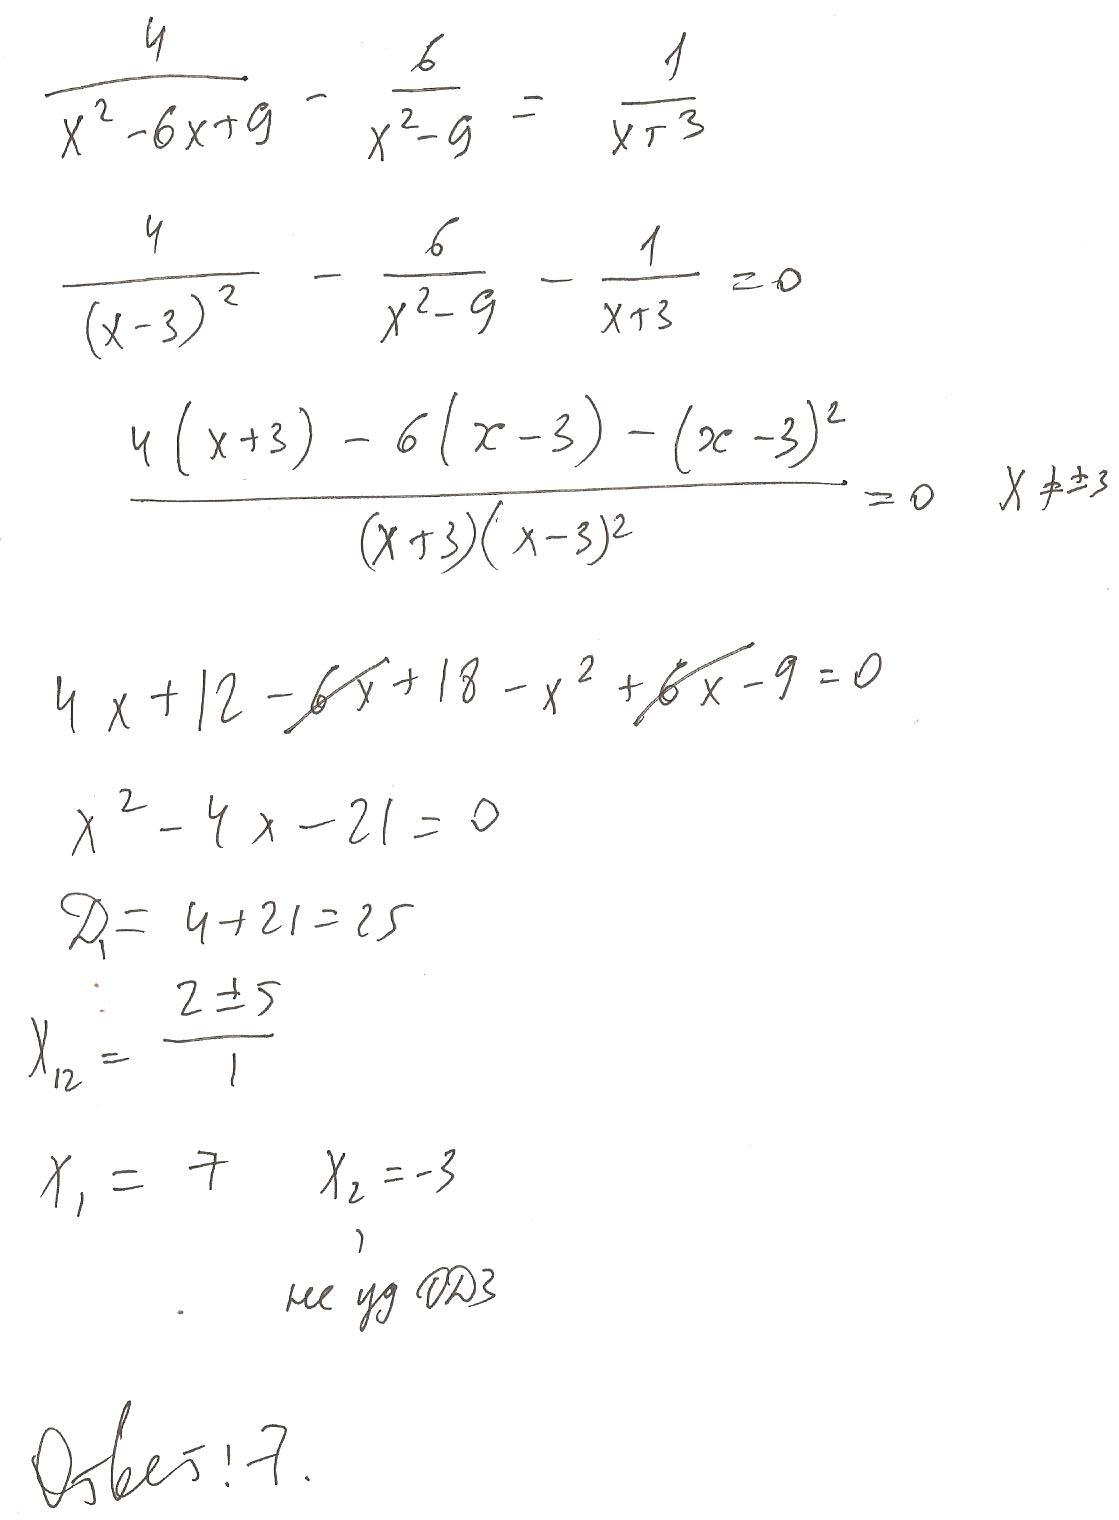 4/(x²-6x+9) - 6/(x²-9) = 1/(x+3)
4/(x-3)² - 6/(x²-9) - 1/(x+3) = 0
(4(x+3) - 6(x-3) - (x-3)²)/((x+3)(x-3)²) = 0 x ≠ ±3
4x+12-6x+18-x²+6x-9=0
x²-4x-21=0
D₁= 4+21=25
x₁₂ = (2±5)/1
x₁ = 7 x₂ = -3
не уд ОДЗ
Ответ: 7.